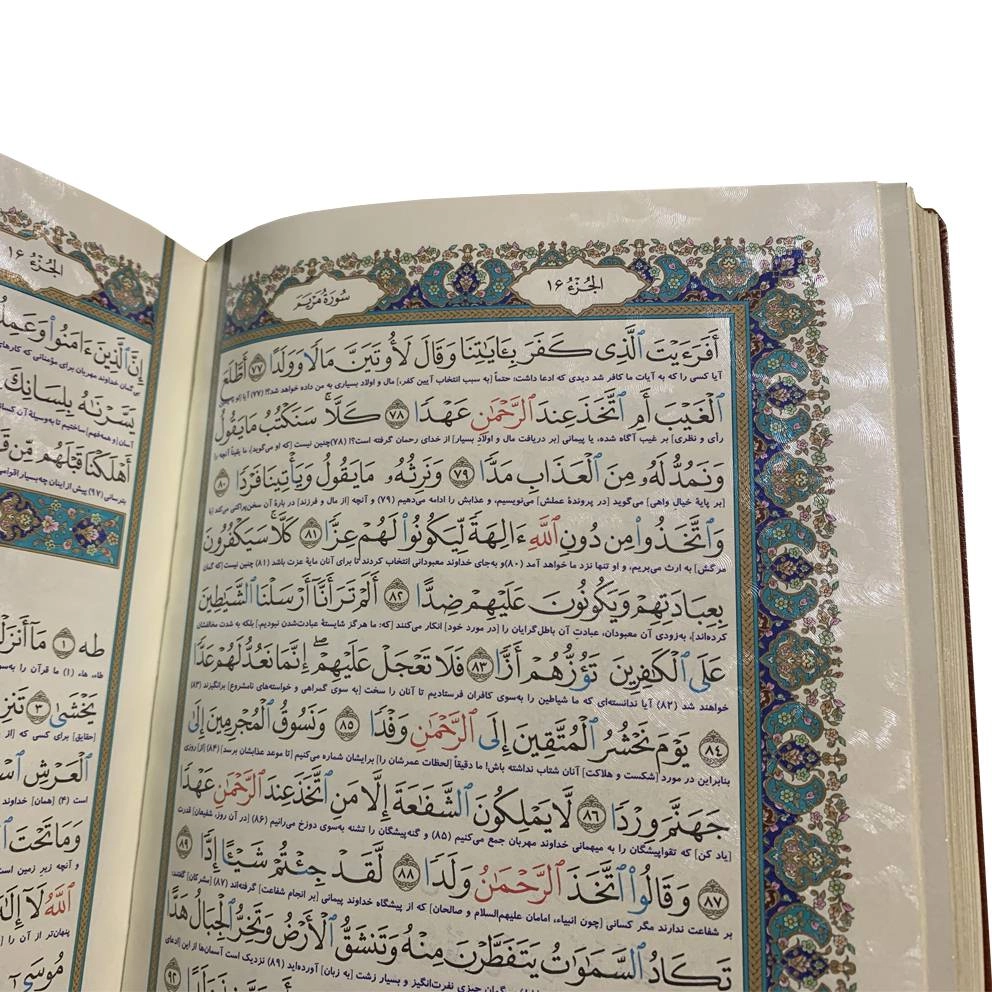 سُورَةُ مَرْيَمَ
الجُزْءُ ١٦
أَفَرَءَيْتَ ٱلَّذِى كَفَرَ بِـَٔايَـٰتِنَا وَقَالَ لَأُوتَيَنَّ مَالًا وَوَلَدًا ٧٧ أَطَّلَعَ
آیا کسی را که به آیات ما کافر شد دیدی که ادعا داشت: حتماً [به سبب انتخاب آیین کفر،] مال و اولاد بسیاری به من داده خواهد شد؟! (۷۷) آیا [او
ٱلْغَيْبَ أَمِ ٱتَّخَذَ عِندَ ٱلرَّحْمَـٰنِ عَهْدًا ٧٨ كَلَّا ۚ سَنَكْتُبُ مَا يَقُولُ
رأی و نظری] بر غیب آگاه شده، یا پیمانی [بر دریافت مال و اولادِ بسیار] از خدای رحمان گرفته است؟! (۷۸) چنین نیست [که او می‌گوید]، ما یقیناً آنچه را
وَنَمُدُّ لَهُۥ مِنَ ٱلْعَذَابِ مَدًّا ٧٩ وَنَرِثُهُۥ مَا يَقُولُ وَيَأْتِينَا فَرْدًا ٨٠
[بر پایهٔ خیال واهی] می‌گوید [در پروندهٔ عملش] می‌نویسیم، و عذابش را ادامه می‌دهیم (۷۹) و آنچه [از مال و فرزند] در بارهٔ آن سخن‌پراکنی می‌کند [با
وَٱتَّخَذُوا۟ مِن دُونِ ٱللَّهِ ءَالِهَةً لِّيَكُونُوا۟ لَهُمْ عِزًّا ٨١ كَلَّا ۚ سَيَكْفُرُونَ
مرگش] به ارث می‌بریم، و او تنها نزد ما خواهد آمد (۸۰) و به‌جای خداوند معبودانی انتخاب کردند تا برای آنان مایهٔ عزت باشد (۸۱) چنین نیست [که گمان
بِعِبَادَتِهِمْ وَيَكُونُونَ عَلَيْهِمْ ضِدًّا ٨٢ أَلَمْ تَرَ أَنَّآ أَرْسَلْنَا ٱلشَّيَـٰطِينَ
کرده‌اند]، به‌زودی آن معبودان، عبادتِ آن باطل‌گرایان را [در مورد خود] انکار می‌کنند [که: ما هرگز شایستهٔ عبادت‌شدن نبودیم] بلکه به شدت مخالفتشان
عَلَى ٱلْكَـٰفِرِينَ تَؤُزُّهُمْ أَزًّا ٨٣ فَلَا تَعْجَلْ عَلَيْهِمْ ۖ إِنَّمَا نَعُدُّ لَهُمْ عَدًّا
خواهند شد (۸۲) آیا ندانسته‌ای که ما شیاطین را به‌سوی کافران فرستادیم تا آنان را سخت [به سوی گمراهی و خواسته‌های نامشروع] برانگیزند (۸۳)
٨٤ يَوْمَ نَحْشُرُ ٱلْمُتَّقِينَ إِلَى ٱلرَّحْمَـٰنِ وَفْدًا ٨٥ وَنَسُوقُ ٱلْمُجْرِمِينَ إِلَىٰ
بنابراین در مورد [شکست و هلاکت] آنان شتاب نداشته باش! ما دقیقاً [لحظات عمرشان را] برایشان شماره می‌کنیم [تا موعد عذابشان برسد] (۸۴) [از] روزی
جَهَنَّمَ وِرْدًا ٨٦ لَّا يَمْلِكُونَ ٱلشَّفَـٰعَةَ إِلَّا مَنِ ٱتَّخَذَ عِندَ ٱلرَّحْمَـٰنِ عَهْدًا
[یاد کن] که تقواپیشگان را به میهمانی خداوند مهربان جمع می‌کنیم (۸۵) و گنه‌پیشگان را تشنه به‌سوی دوزخ می‌رانیم (۸۶) [در آن روز، شفیعان] قدرت
٨٧ وَقَالُوا۟ ٱتَّخَذَ ٱلرَّحْمَـٰنُ وَلَدًا ٨٨ لَّقَدْ جِئْتُمْ شَيْـًٔا إِدًّا ٨٩
بر شفاعت ندارند مگر کسانی [چون انبیاء، امامان علیهم‌السلام و صالحان] که از پیشگاه خداوند پیمانی [بر انجام شفاعت] گرفته‌اند (۸۷) [مشرکان] گفتند:
تَكَادُ ٱلسَّمَـٰوَٰتُ يَتَفَطَّرْنَ مِنْهُ وَتَنشَقُّ ٱلْأَرْضُ وَتَخِرُّ ٱلْجِبَالُ هَدًّا
گمان چیزی نفرت‌انگیز و بسیار زشت [به زبان] آورده‌اید (۸۹) نزدیک است آسمان‌ها از این [ادعای
٩٢
الجُزْءُ ١٦
إِنَّ ٱلَّذِينَ ءَامَنُوا۟ وَعَمِلُ
گمان خداوند مهربان برای مؤمنانی که کارهای
يَسَّرْنَـٰهُ بِلِسَانِكَ
آسان [و همه‌فهم] ساختیم تا به‌وسیلهٔ آن
أَهْلَكْنَا قَبْلَهُم مِّن قَ
بترسانی (۹۷) پیش از اینان چه بسیار
طه ١ مَآ أَنزَلْ
طاء، هاء، (۱) ما قرآن را به‌سو
يَخْشَىٰ ٣ تَنزِ
حقایق] برای کسی که [از
ٱلْعَرْشِ ٱسْ
است (۴) [همان] خداوند
وَمَا تَحْتَ ٱ
و آنچه زیر زمین است
ٱللَّهُ لَآ إِلَـٰ
پنهان‌تر از آن را
مُوسَىٰٓ